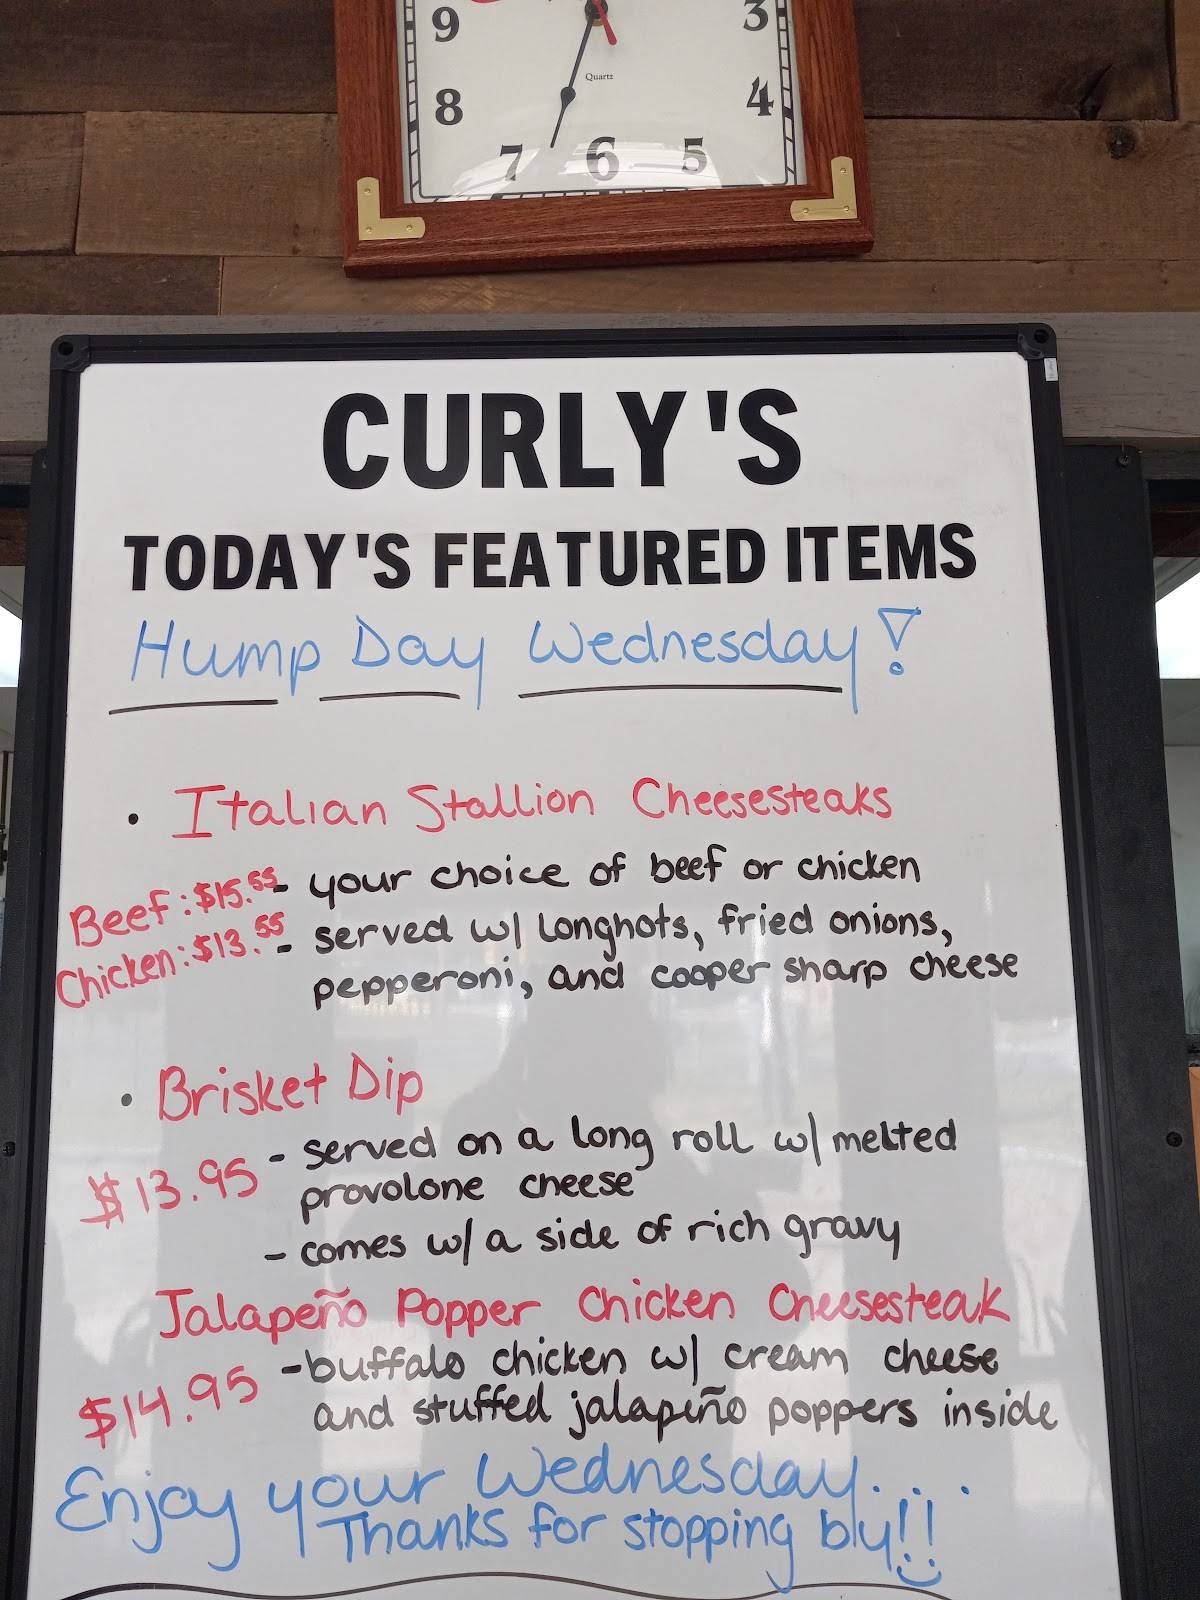 9 3
Quartz
8 4
7 6 5
CURLY'S
TODAY'S FEATURED ITEMS
Hump Day Wednesday!
• Italian Stallion Cheesesteaks
Beef: $15.55 - your choice of beef or chicken
Chicken: $13.55 - served w/ longhots, fried onions,
pepperoni, and cooper sharp cheese
• Brisket Dip
$13.95 - served on a long roll w/ melted
provolone cheese
- comes w/ a side of rich gravy
Jalapeño Popper Chicken Cheesesteak
$14.95 - buffalo chicken w/ cream cheese
and stuffed jalapeño poppers inside
Enjoy your Wednesday....
Thanks for stopping bly!!